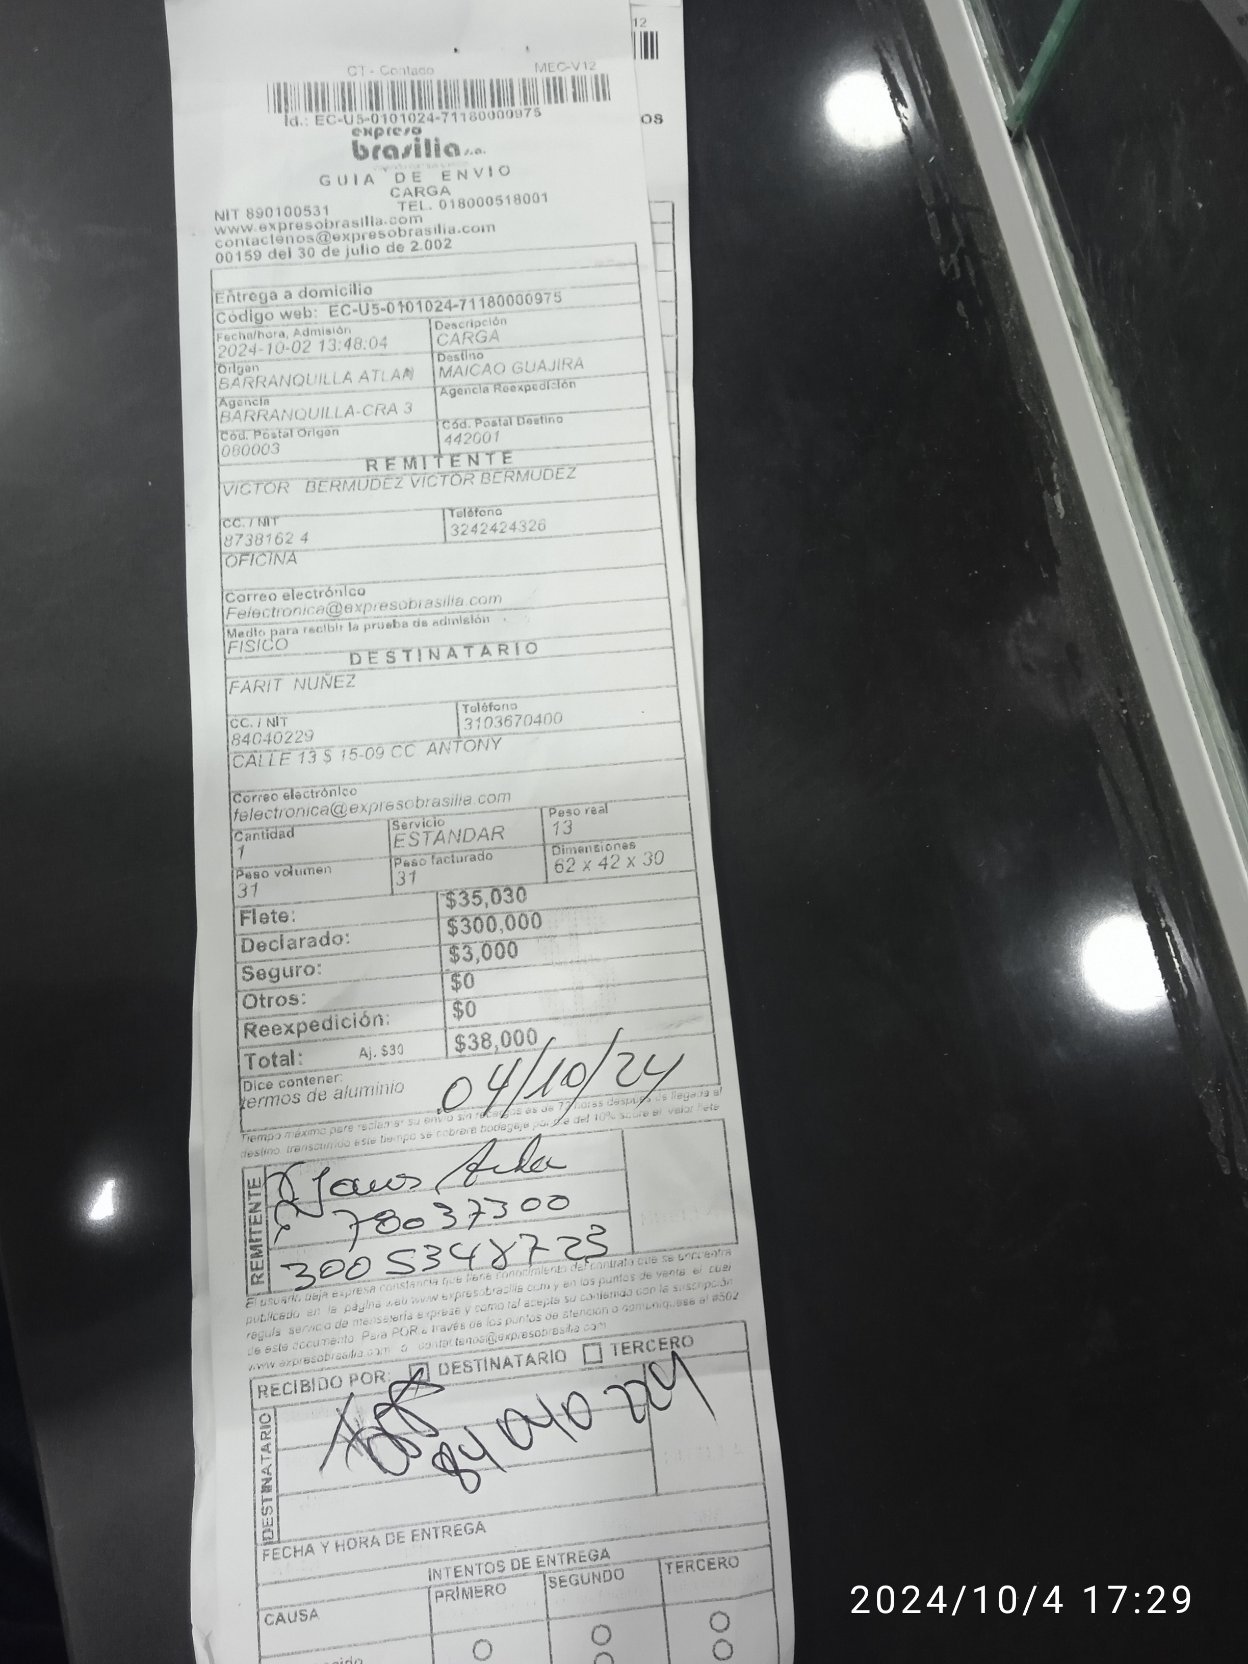 12
CT - Contado MEC-V12
Id.: EC-U5-0101024-71180000975
OS
expreso
brasilia s.a.
GUIA DE ENVIO
CARGA
NIT 890100531 TEL. 018000518001
www.expresobrasilia.com
contactenos@expresobrasilia.com
00159 del 30 de julio de 2.002
Entrega a domicilio
Código web: EC-U5-0101024-71180000975
Fecha/hora, Admisión Descripción
2024-10-02 13:48:04 CARGA
Origen Destino
BARRANQUILLA ATLAN MAICAO GUAJIRA
Agencia Agencia Reexpedición
BARRANQUILLA-CRA 3
Cód. Postal Origen Cód. Postal Destino
080003 442001
REMITENTE
VICTOR BERMUDEZ VICTOR BERMUDEZ
CC. / NIT Teléfono
8738162 4 3242424326
OFICINA
Correo electrónico
Felectronica@expresobrasilia.com
Medio para recibir la prueba de admisión
FISICO
DESTINATARIO
FARIT NUÑEZ
CC. / NIT Teléfono
84040229 3103670400
CALLE 13 $ 15-09 CC ANTONY
Correo electrónico
felectronica@expresobrasilia.com
Cantidad Servicio Peso real
1 ESTANDAR 13
Peso volumen Peso facturado Dimensiones
31 31 62 x 42 x 30
Flete: $35,030
Declarado: $300,000
Seguro: $3,000
Otros: $0
Reexpedición: $0
Total: Aj. $30 $38,000
Dice contener:
termos de aluminio
04/10/24
Tiempo máximo para reclamar su envío sin recargos es de 72 horas después de llegada al
destino, transcurrido este tiempo se cobrara bodegaje por día del 10% sobre el valor flete
REMITENTE
78037300
300 5348723
El usuario deja expresa constancia que tiene conocimiento del contrato que se encuentra
publicado en la página web www.expresobrasilia.com y en los puntos de venta, el cual
regula servicio de mensajería expresa y como tal acepta su contenido con la suscripción
de este documento. Para PQR a través de los puntos de atención o comuníquese al #502
www.expresobrasilia.com o contactenos@expresobrasilia.com
RECIBIDO POR: DESTINATARIO TERCERO
DESTINATARIO
84040229
FECHA Y HORA DE ENTREGA
INTENTOS DE ENTREGA
CAUSA PRIMERO SEGUNDO TERCERO
2024/10/4 17:29